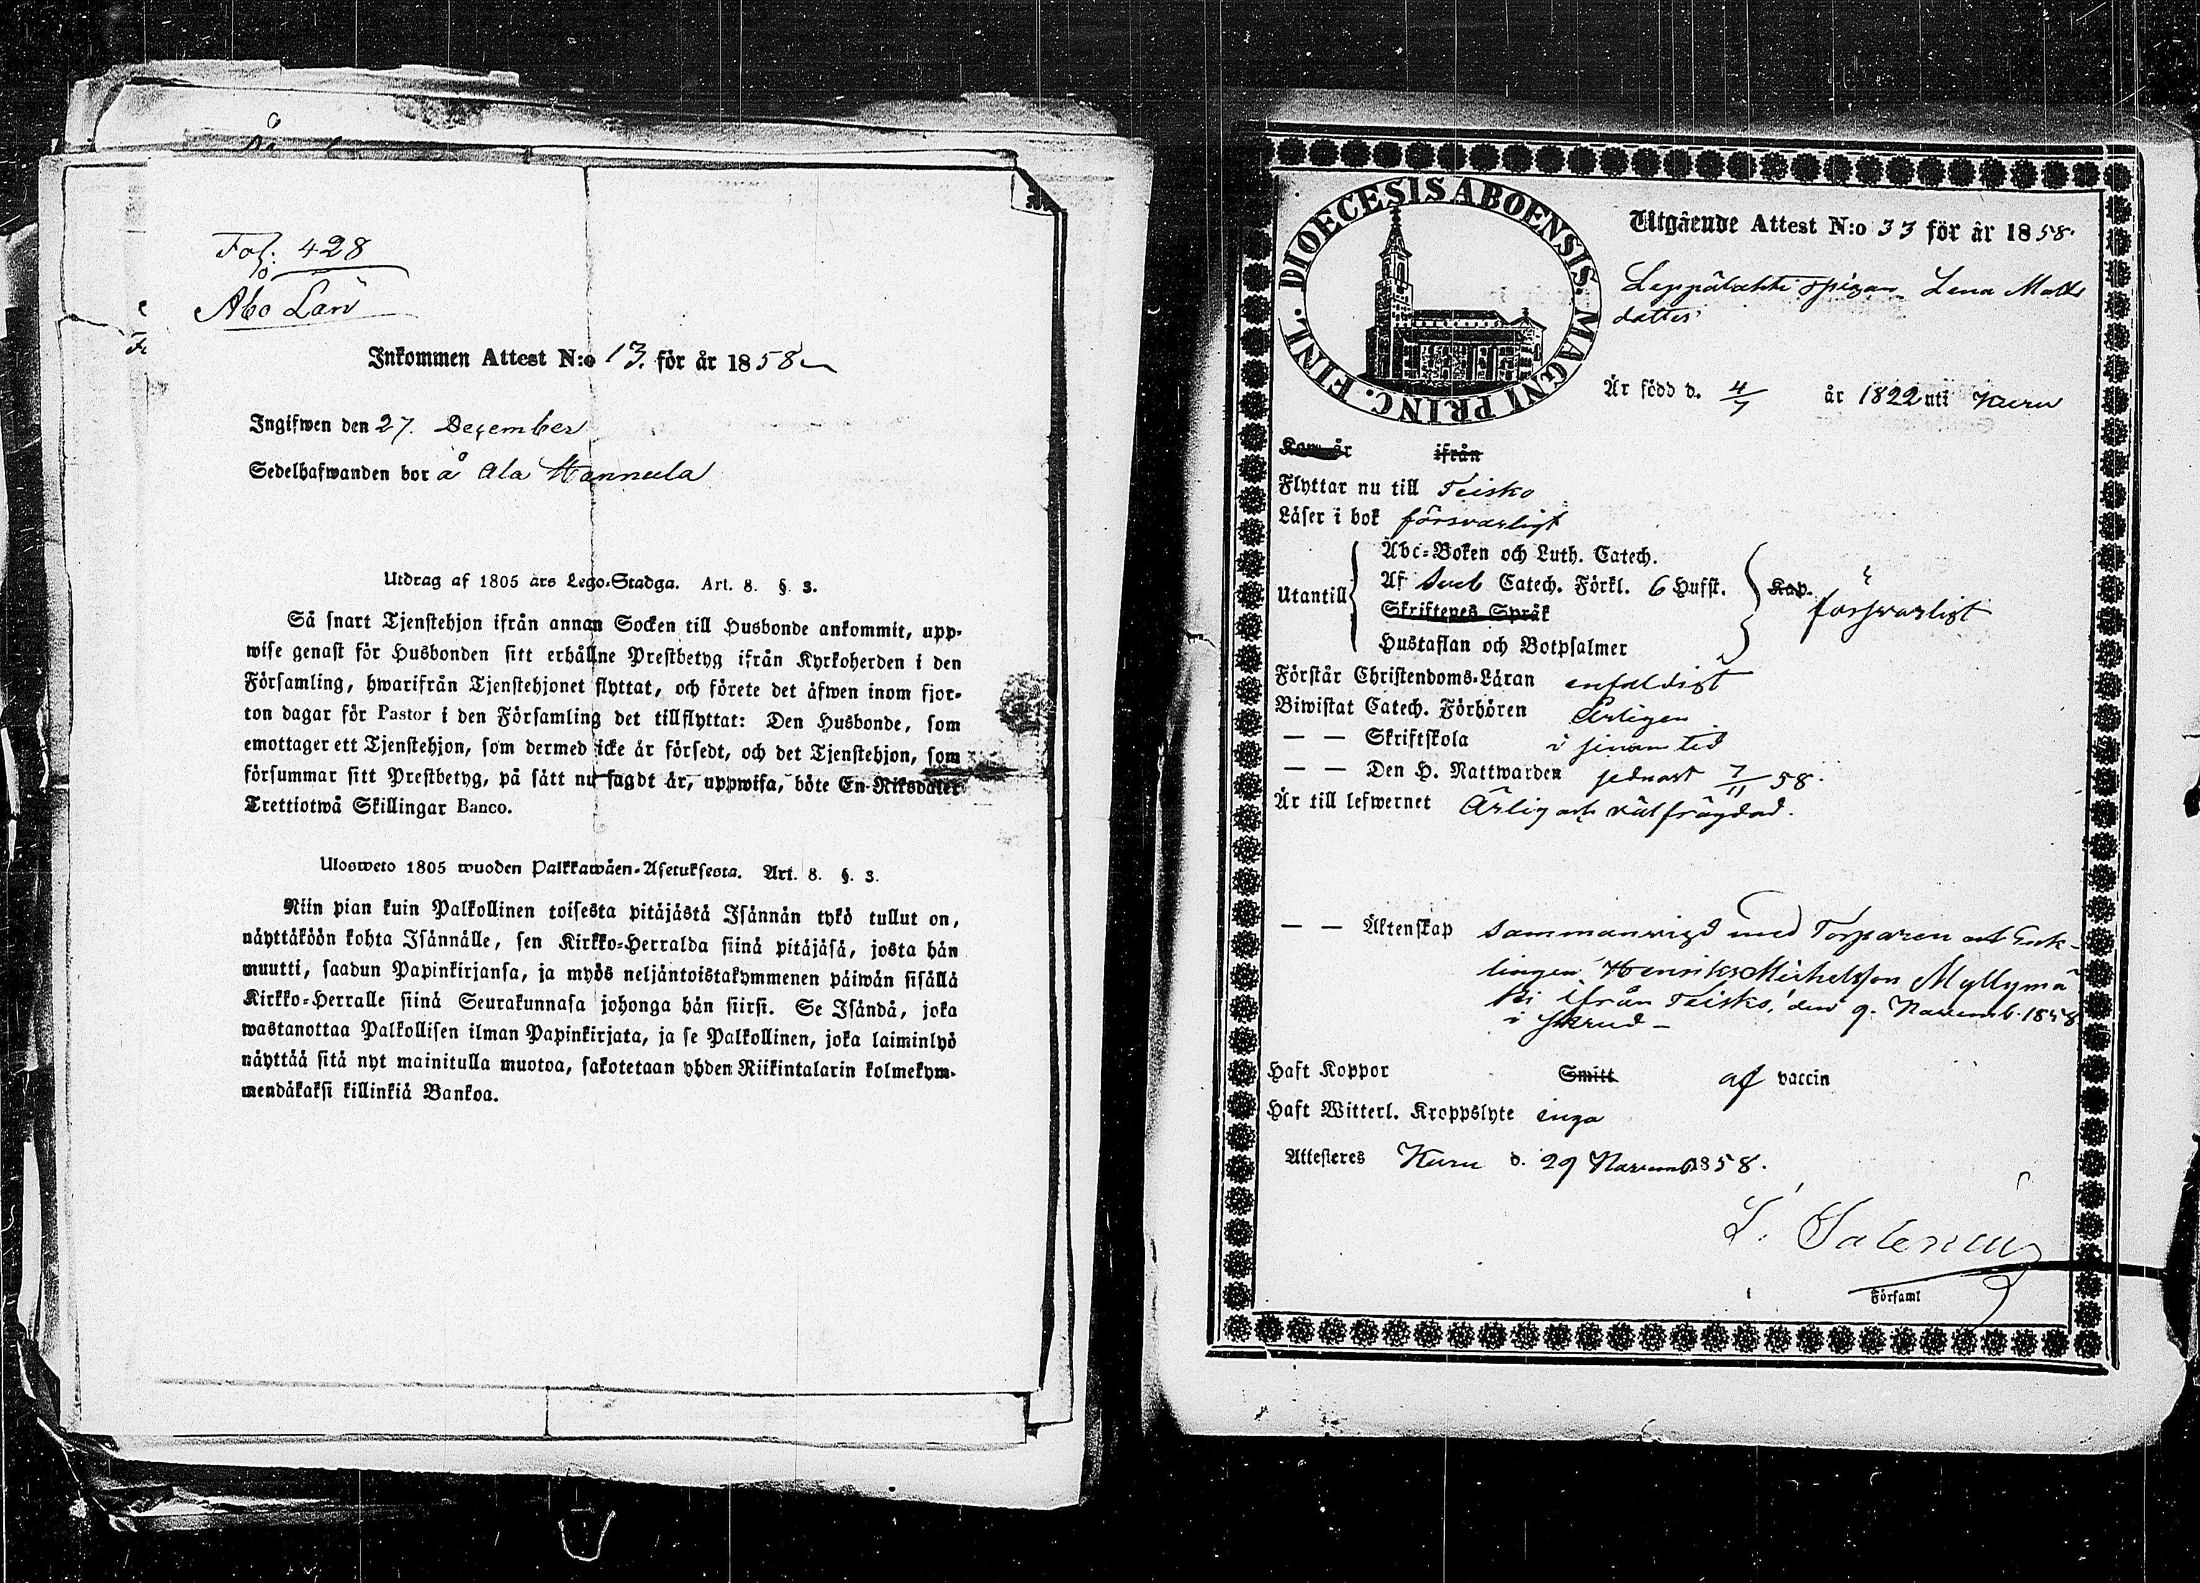 Fol: 428
Åbo Län
Inkommen Attest N:o 13. för år 1858
Ingifwen den 27. December
Sedelhafwanden bor å Ala Hannula
Utdrag af 1805 års Lego-Stadga. Art. 8. § 3.
Så snart Tjenstehjon ifrån annan Socken till Husbonde ankommit, upp-
wise genast för Husbonden sitt erhållne Prestbetyg ifrån Kyrkoherden i den
Församling, hwarifrån Tjenstehjonet flyttat, och förete det äfwen inom fjor-
ton dagar för Pastor i den Församling det tillflyttat: Den Husbonde, som
emottager ett Tjenstehjon, som dermed icke är försedt, och det Tjenstehjon, som
försummar sitt Prestbetyg, på sätt nu sagdt är, uppwisa, böte En Riksdaler
Trettiotwå Skillingar Banco.
Ulosweto 1805 wuoden Palkkawäen-Asetuksesta. Art. 8. §. 3.
Niin pian kuin Palkollinen toisesta pitäjästä Isännän tykö tullut on,
näyttäköön kohta Isännälle, sen Kirkko-Herralda siinä pitäjäsä, josta hän
muutti, saadun Papinkirjansa, ja myös neljäntoistakymmenen päiwän sisällä
Kirkko-Herralle siinä Seurakunnasa johonga hän siirsi. Se Isändä, joka
wastanottaa Palkollisen ilman Papinkirjata, ja se Palkollinen, joka laiminlyö
näyttää sitä nyt mainitulla muotoa, sakotetaan yhden Riikintalarin kolmekym-
mendäkaksi killinkiä Bankoa.
DIOECESIS ABOENSIS. MAGNI PRINC. FINL.
Utgående Attest N:o 33 för år 1858.
Leppälahti pigan Lena Matts
dotter
Är född d. 4/7 år 1822 uti Kuru
Kom år ifrån
Flyttar nu till Teisko
Läser i bok försvarligt
Abc-Boken och Luth. Catech.
Utantill Af Sveb Catech. Förkl. 6 Hufst. Kap.
försvarligt
Skriftenes Språk
Hustaflan och Botpsalmer
Förstår Christendoms-Läran enfaldigt
Biwistat Catech. Förhören Årligen
— — Skriftskola i sinom tid
— — Den H. Nattwarden sednast 7/11 58.
Är till lefwernet Ärlig och välfrägdad.
— — Äktenskap Sammanvigd med Torparen och Enk-
lingen Henrik Michelsson Myllymä
ki ifrån Teisko, den 9. Novemb. 1858
i Skrud —
Haft Koppor Smitt af vaccin
Haft Witterl. Kroppslyte inga
Attesteres Kuru d. 29 Novemb 1858.
L. Salenius
Församl